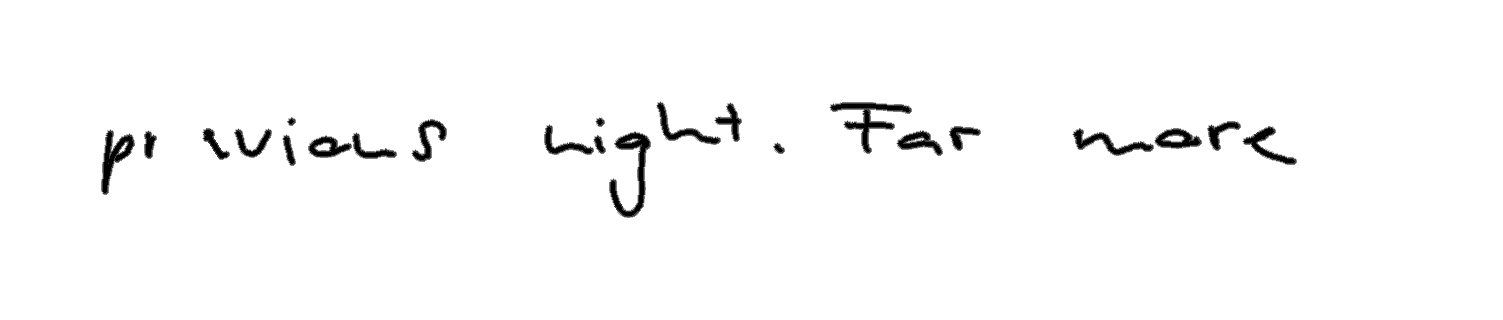 previous night. Far more